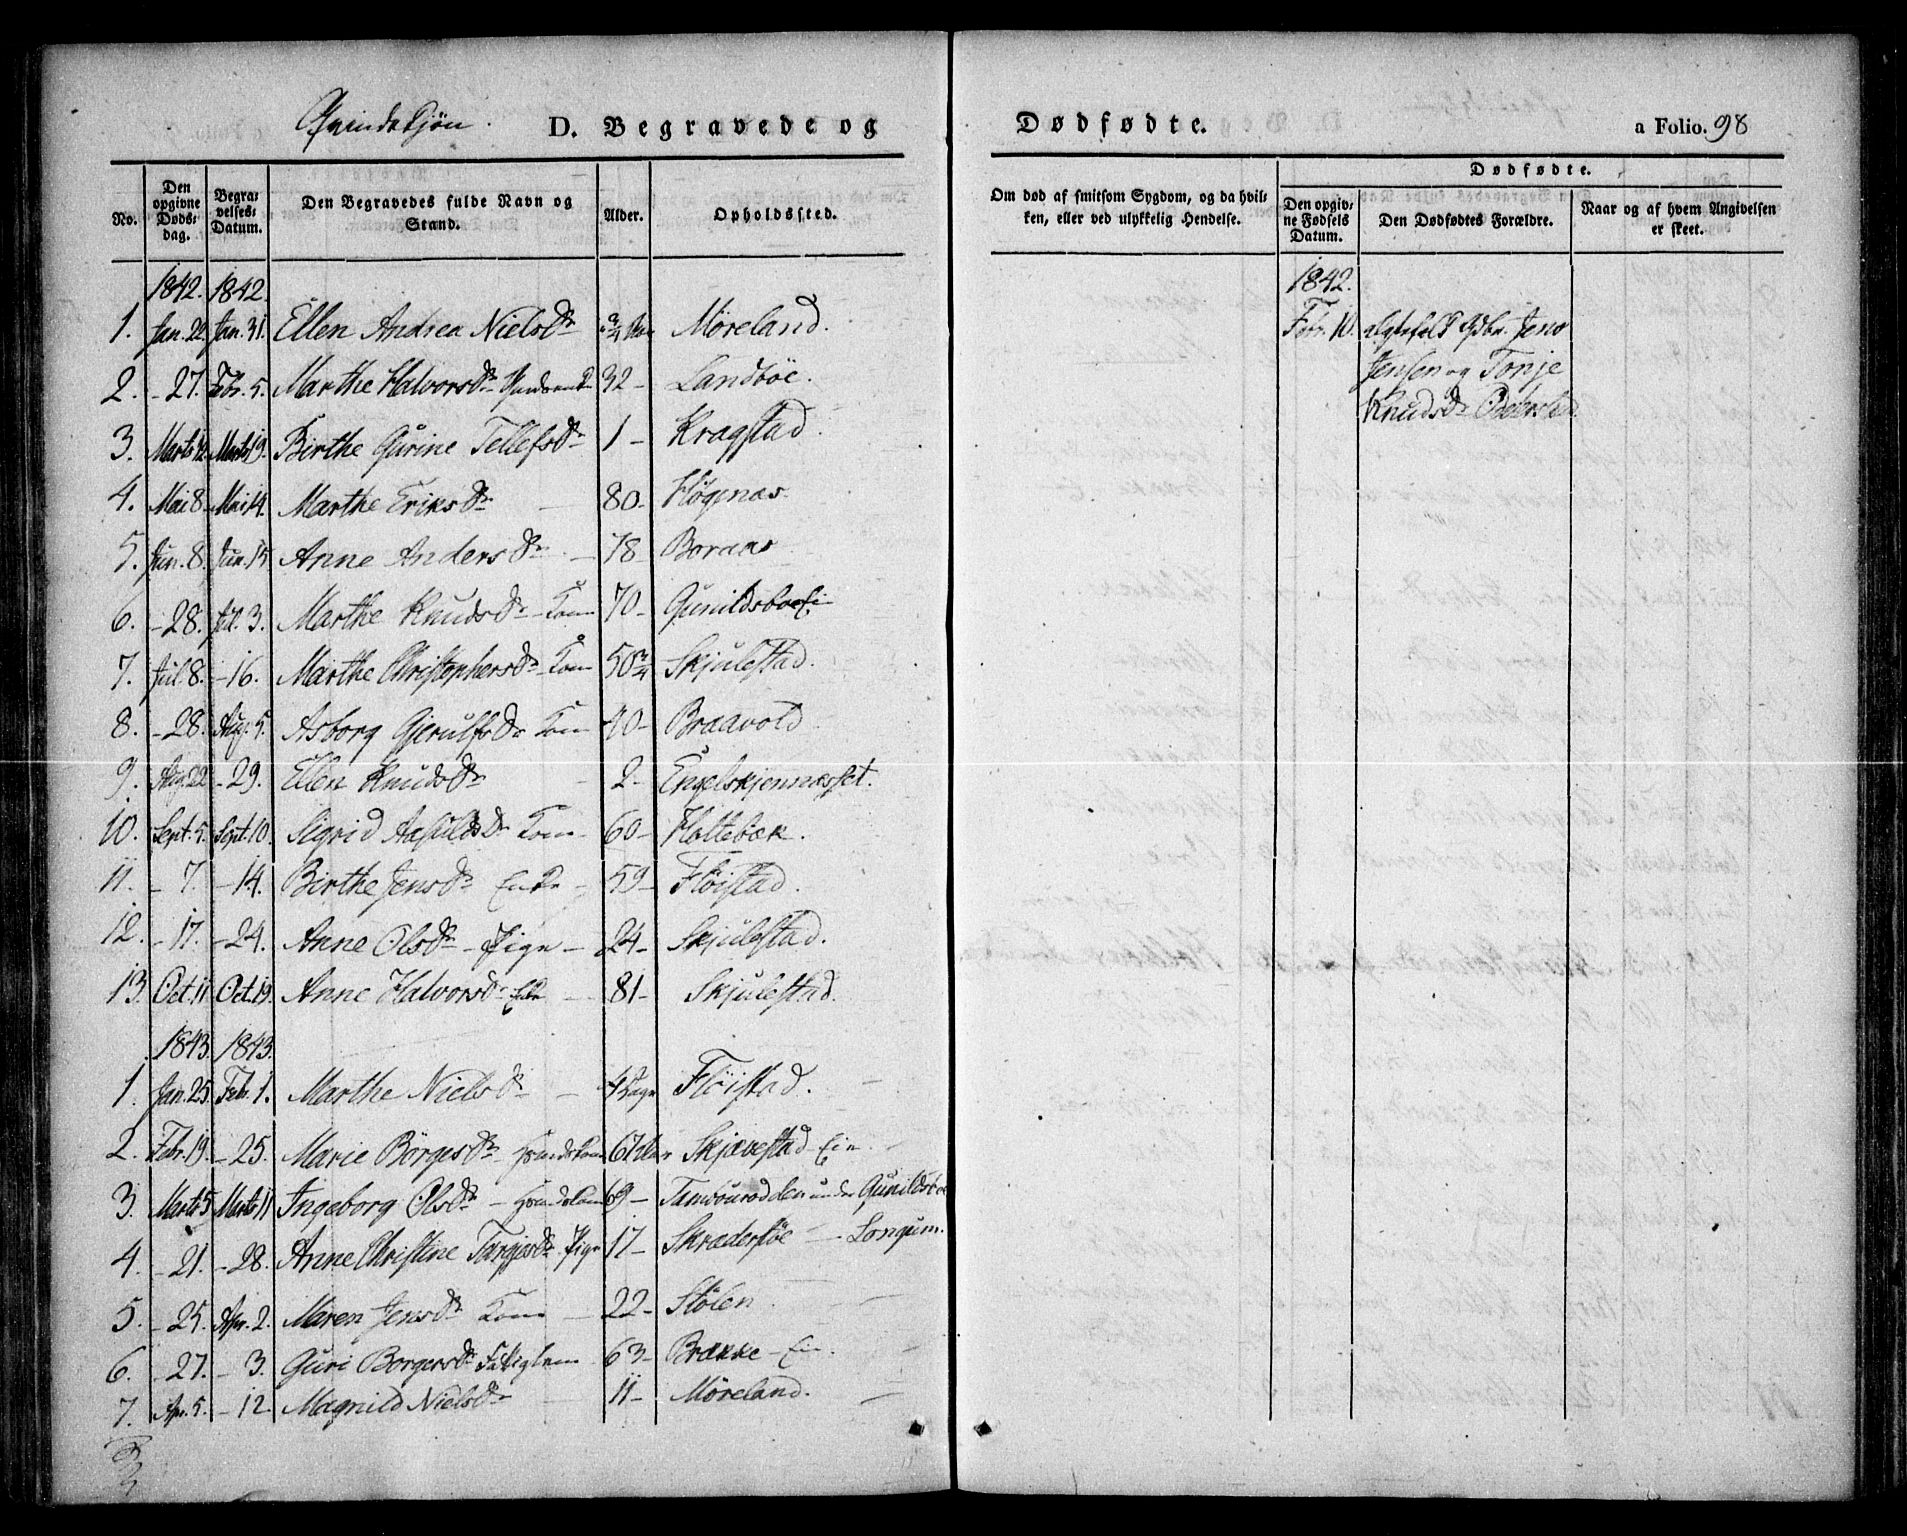 Qvindekjön. D. Begravede og
No. Den opgivne Døds-dag. Begravelses-Datum. Den Begravedes fulde Navn og Stand. Alder. Opholdssted.
1842. 1842.
1. Jan. 22. Jan. 31. Ellen Andrea Nielsdr 3/4 Aar Möreland.
2. - 27. Febr. 5. Marthe Halvorsdr 32 - Landböe.
3. Marts 12. Marts 19. Birthe Gurine Tellefsdr 1 - Kragstad.
4. Mai 8. Mai 14. Marthe Eriksdr - 80 - Högenæs
5. Jun. 8. Jun. 15. Anne Andersdr - 78 - Boraas
6. - 28. Jul. 3. Marthe Knudsdr - Kone 70 - Gunildsboe Ei
7. Jul. 8. - 16. Marthe Christophersdr Kone 50 3/4 Skjulestad.
8. - 28. Aug. 5. Asborg Gjerulfsdr Kone 40 - Braavold
9. Aug. 22 - 29. Ellen Knudsdr - 2 - Engelskjennæsset.
10. Sept. 5. Sept. 10. Sigrid Aasulsdr Kone - 60 - Holtebæk.
11. - 7. - 14. Birthe Jensdr Enke - 59 - Flöistad.
12. - 17. - 24. Anne Olsdr - Pige - 24 - Skjulestad.
13. Oct. 11 Oct. 19. Anne Halvorsdr Enke - 81 - Skjulestad.
1843. 1843.
1. Jan. 25. Febr. 1. Marthe Nielsdr - 4 Dage Flöistad. -
2. Febr. 19. - 25. Marie Börgesdr Huuskone 67 Aar Skjævestad - Eie. -
3. Marts 5 Marts 11 Ingeborg Olsdr - 69 - Tambourodden under Gunildsboe
4. - 21. - 28. Anne Christine Targjesdr Pige 17 - Skrædersöe - - Longum.
5. - 25. Apr. 2. Maren Jensdr Kone - 22 - Stölen. -
6. - 27. - 3. Guri Borgersdr Fattiglem 63 - Brække - Eie. -
7. Apr. 5. - 12. Magnild Nielsdr - 11 - Möreland. -
Dødfødte. a Folio. 98
Om død af smitsom Sygdom, og da hvilken, eller ved ulykkelig Hendelse.
Dødfødte.
Den opgivne Fødsels Datum. Den Dødfødtes Forældre. Naar og af hvem Angivelsen er skeet.
1842.
Febr. 10. Gdbr. Jens
Jensen og Tonje
Knudsdr